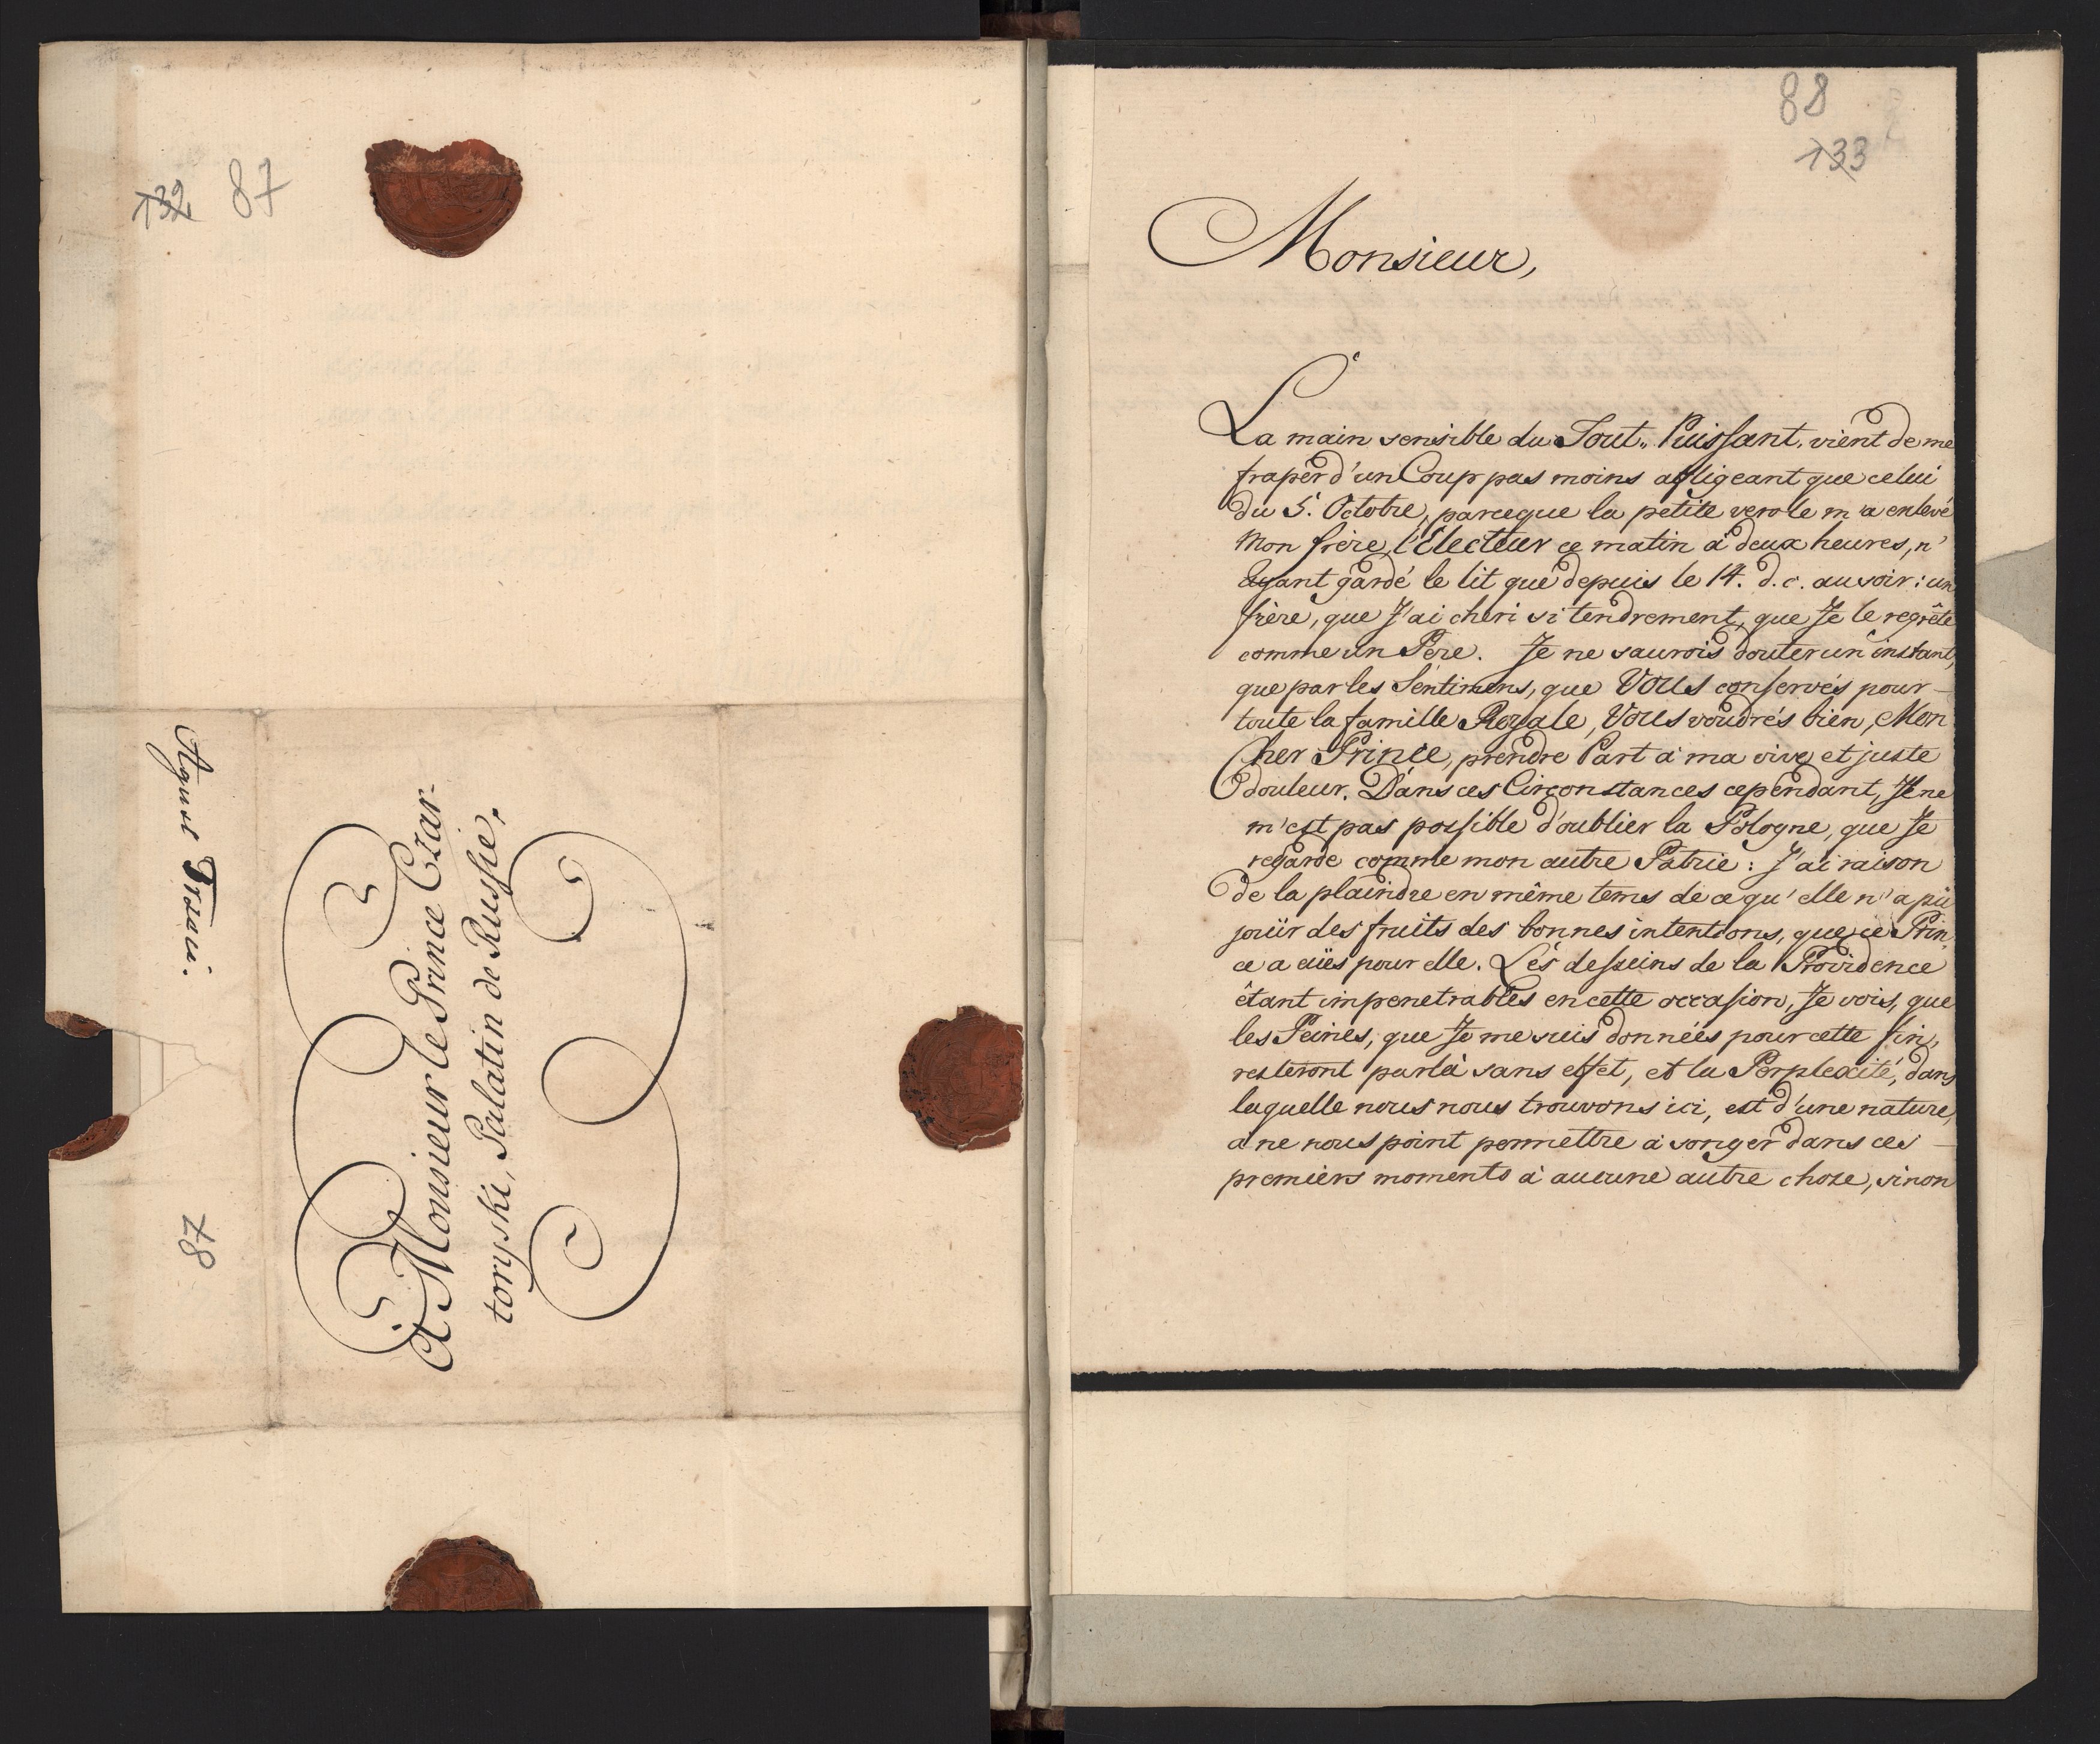 132 87
August Trzeci.
87
A Monsieur le Prince Czar-
toryski, Palatin de Russie.
88
133
Monsieur,
La main sensible du Tout„ Puissant, vient de me
fraper d'un Coup pas moins affligeant que celui
du 5. Octobre, parceque la petite verole m'a enlevé
Mon frère l'Electeur ce matin à deux heures, n'
ayant gardé le lit que depuis le 14. d. c. au soir: un
frère, que J'ai cheri si tendrement, que Je le regrète
comme un Père. Je ne saurois douter un instant,
que par les Sentimens, que Vous conservés pour
toute la famille Royale, Vous voudrés bien, Mon
Cher Prince, prendre Part à ma vive et juste
douleur. Dans ces Circonstances cependant, Il ne
m'est pas possible d'oublier la Pologne, que Je
regarde comme mon autre Patrie: J'ai raison
de la plaindre en même tems de ce qu'elle n'a pû
jouïr des fruits des bonnes intentions, que ce Prin
ce a eües pour elle. Les desseins de la Providence
étant impenetrables en cette occasion, Je vois, que
les Peines, que Je me suis données pour cette fin,
resteront par là sans effet, et la Perplexité, dans
laquelle nous nous trouvons ici, est d'une nature,
à ne nous point permettre à songer dans ces
premiers moments à aucune autre choze, sinon